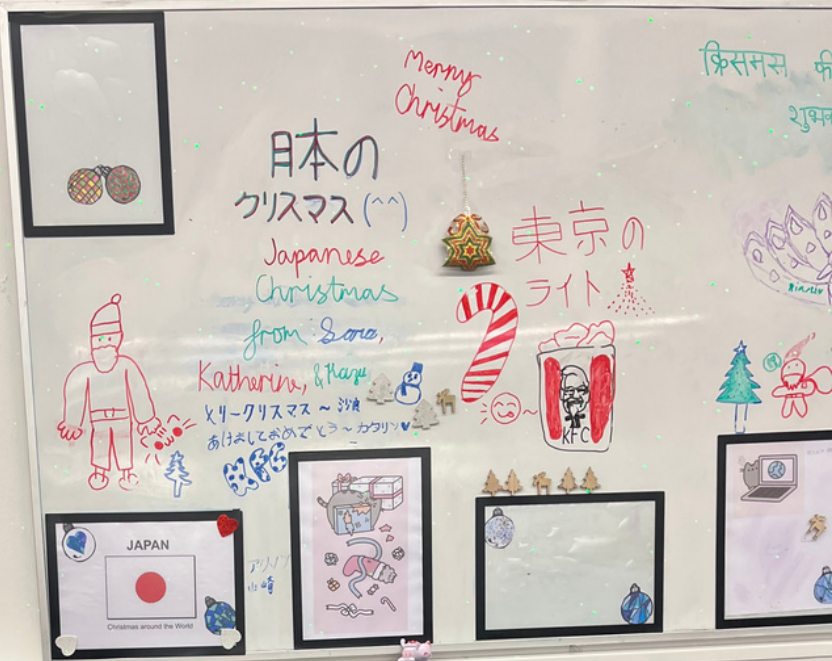 Merry
Christmas
日本の
クリスマス (^^)
Japanese
Christmas
from Sara,
Katherine, & Kazu
メリークリスマス ~ 沙良
あけましておめでとう~ カタリン♥
東京の
ライト
KFC
क्रिसमस की
JAPAN
Christmas around the World
山崎